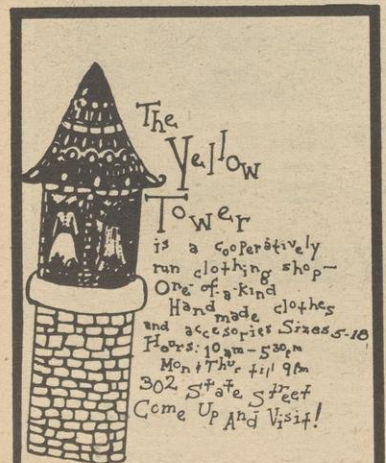 The
Yellow
Tower
is a cooperatively
run clothing shop—
One-of-a-kind
Hand made clothes
and accesories Sizes 5-18
Hours: 10am-5:30pm
Mon & Thur till 9pm
302 State Street
Come Up And Visit!